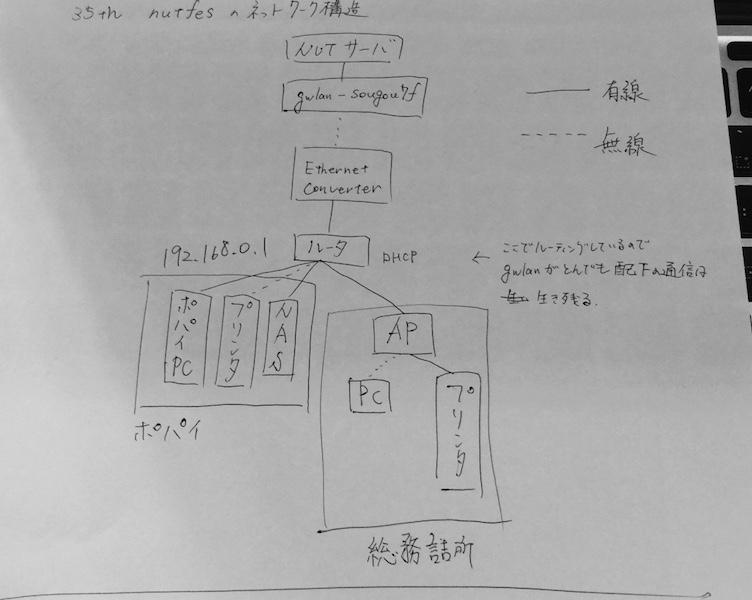 35th nutfes のネットワーク構造
NUTサーバ
gwlan-sougou7f
有線
無線
Ethernet
Converter
192.168.0.1
ルータ
DHCP
← ここでルーティングしているので
gwlanがとんでも配下の通信は
生き残る.
ポパイPC
プリンタ
NAS
ポパイ
AP
PC
プリンタ
総務詰所